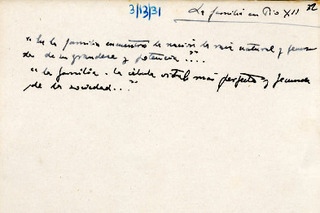 3/13/31
La familia en Pío XII
"En la familia encuentra la nación la raíz natural y fecunda
de su grandeza y potencia ...."
"La familia. la célula vital más perfecta y fecunda
de la sociedad..."